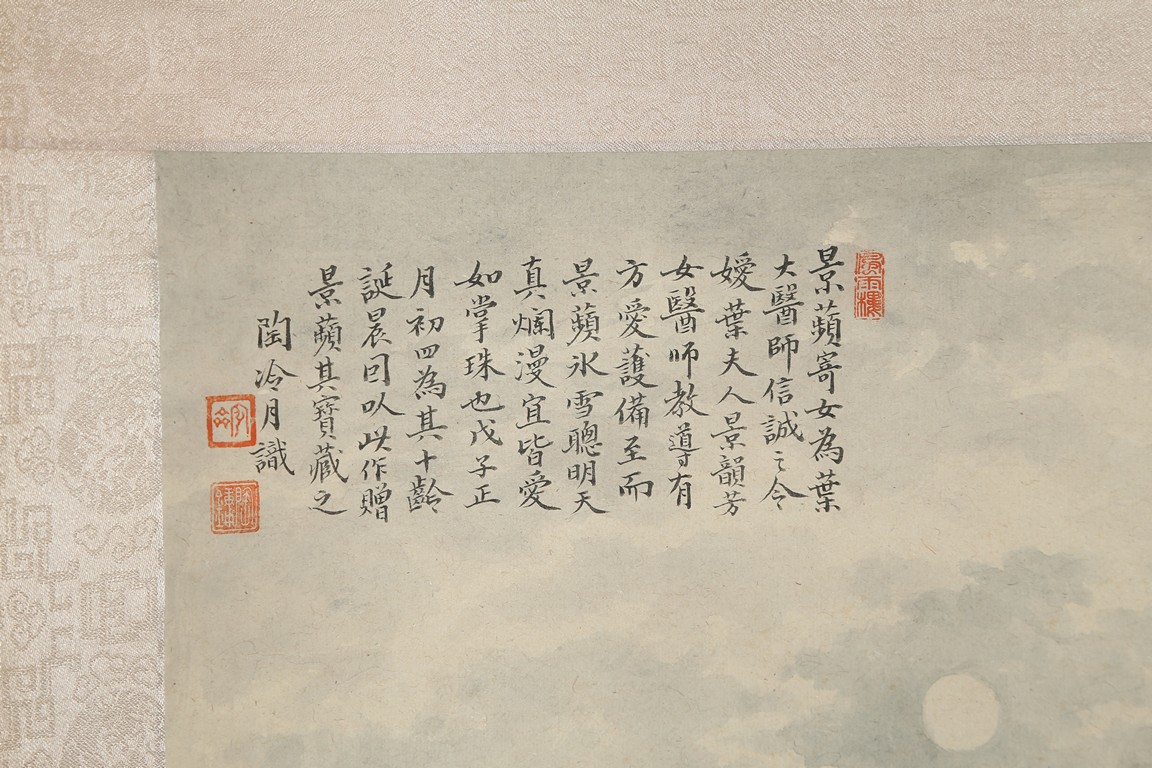 景蘋寄女為葉
大醫師信誠之令
嬡葉夫人景韻芳
女醫師教導有
方愛護備至而
景蘋冰雪聰明天
真爛漫宜皆愛
如掌珠也戊子正
月初四為其十齡
誕晨因以此作贈
景蘋其寶藏之
陶冷月識